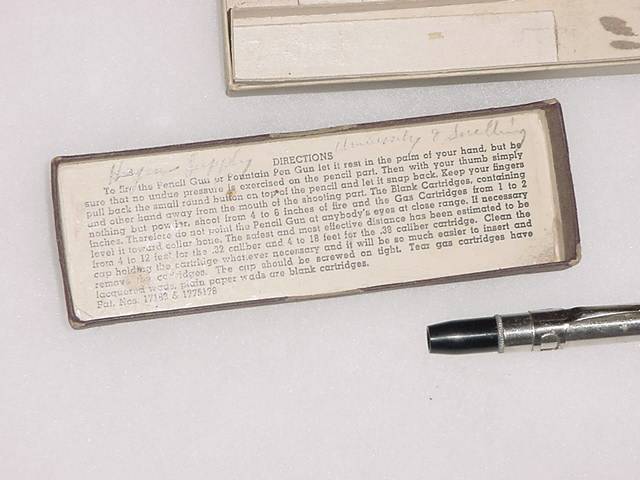 Hagen Supply University & Snelling
DIRECTIONS
To fire the Pencil Gun or Fountain Pen Gun let it rest in the palm of your hand, but be
sure that no undue pressure is exercised on the pencil part. Then with your thumb simply
pull back the small round button on top of the pencil and let it snap back. Keep your fingers
and other hand away from the mouth of the shooting part. The Blank Cartridges, containing
nothing but powder, shoot from 4 to 6 inches of fire and the Gas Cartridges from 1 to 2
inches. Therefore do not point the Pencil Gun at anybody's eyes at close range. If necessary
level it toward collar bone. The safest and most effective distance has been estimated to be
from 4 to 12 feet for the .32 caliber and 4 to 18 feet for the .38 caliber cartridge. Clean the
cap holding the cartridge whatever necessary and it will be so much easier to insert and
remove cartridges. The cup should be screwed on tight. Tear gas cartridges have
lacquered wads, plain paper wads are blank cartridges.
Pat. Nos. & 1775178